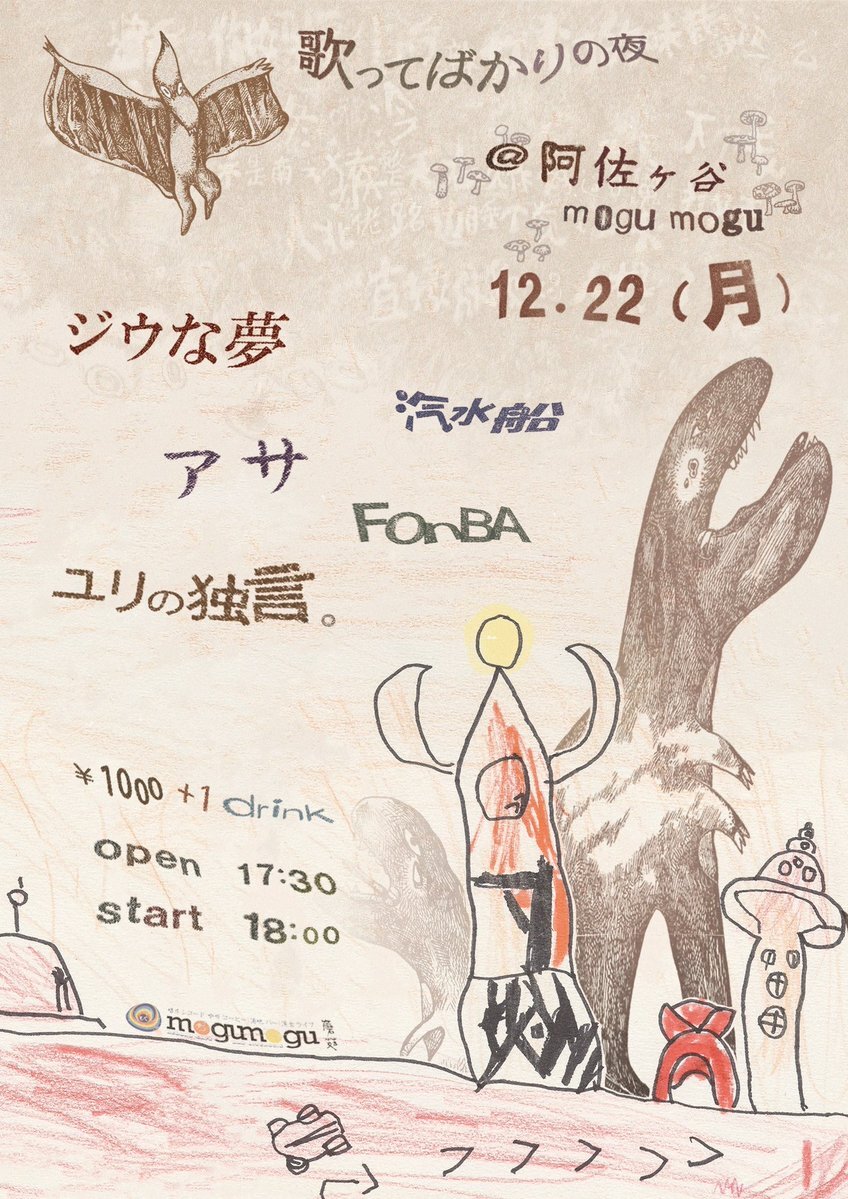 歌ってばかりの夜
@阿佐ヶ谷
mogu mogu
12.22(月)
ジウな夢
汽水船
アサ
FOnBA
ユリの独言。
¥1000 +1 drink
open 17:30
start 18:00
mogumogu